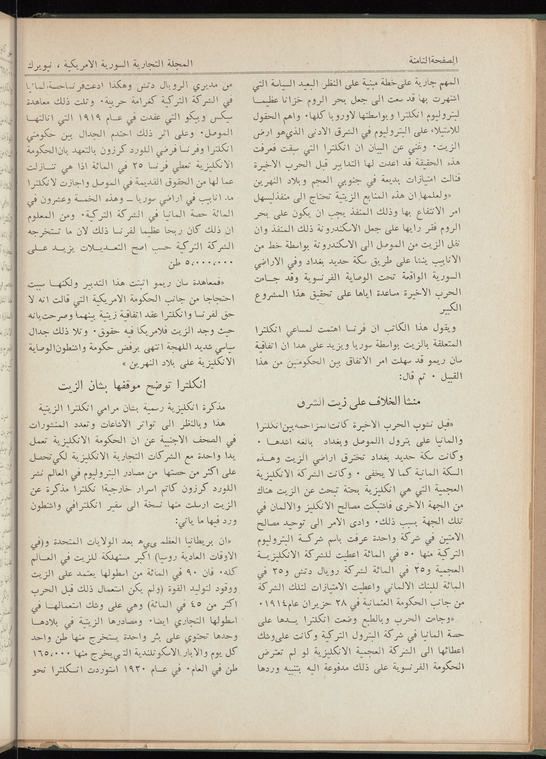 الصفحة الثامنة
المجلة التجارية السورية الاميريكية ، نيويرك
المهم جارية على خطة مبنية على النظر البعيد السياسة التي
اشتهرت بها قد سعت الى جعل بحر الروم خزانا عظيما
لبتروليوم انكلترا وبواسطتها لاوروبا كلها. واهم الحقول
للاستيلاء على البتروليوم في الشرق الادنى الذي هو ارض
الزيت. وغني عن البيان ان انكلترا التي سبقت فعرفت
هذه الحقيقة قد اعدت لها التدابير قبل الحرب الاخيرة
فنالت امتيازات بديعة في جنوبي العجم وبلاد النهرين
«ولعلمها ان هذه المنابع الزيتية تحتاج الى منفذ ليسهل
امر الانتفاع بها وذلك المنفذ يجب ان يكون على بحر
الروم فقر رايها على جعل الاسكندرونة ذلك المنفذ وان
نقل الزيت من الموصل الى الاسكندرونة بواسطة خط من
الانابيب يبتنا على طريق سكة حديد بغداد وفي الاراضي
السورية الواقعة تحت الوصاية الفرنسوية وقد جاءت
الحرب الاخيرة مساعدة اياها على تحقيق هذا المشروع
الكبير
ويقول هذا الكاتب ان فرنسا اهتمت لمساعي انكلترا
المتعلقة بالزيت بواسطة سوريا ويزيد على هذا ان اتفاقية
سان ريمو قد سهلت امر الاتفاق بين الحكومتين من هذا
القبيل . ثم قال:
منشا الخلاف على زيت الشرق
«قبل نشوب الحرب الاخيرة كانت المزاحمة بين انكلترا
والمانيا على بترول الموصل وبغداد بالغة اشدها .
وكانت سكة حديد بغداد تخترق اراضي الزيت وهذه
السكة المانية كما لا يخفى . وكانت الشركة الانكليزية
العجمية التي هي انكليزية بحتة تبحث عن الزيت هناك
من الجهة الاخرى فاشتبكت مصالح الانكليز والالمان في
تلك الجهة بسبب ذلك. وادى الامر الى توحيد مصالح
الامتين في شركة واحدة عرفت باسم شركة البتروليوم
التركية منها ٥٠ في المائة اعطيت للشركة الانكليزية
العجمية و٢٥ في المائة لشركة رويال دتش و٢٥ في
المائة للبنك الالماني واعطيت الامتيازات لتلك الشركة
من جانب الحكومة العثمانية في ٢٨ حزيران عام ١٩١٤
«وجاءت الحرب وبالطبع وضعت انكلترا يدها على
حصة المانيا في شركة البترول التركية وكانت على وشك
اعطائها الى الشركة العجمية الانكليزية لو لم تعترض
الحكومة الفرنسوية على ذلك مدفوعة اليه بتنبيه وردها
من مديري الرويال دتش وهكذا ادعت فرنسا حصة المانيا
في الشركة التركية كغرامة حربية. وتلت ذلك معاهدة
سيكس وبيكو التي عقدت في عام ١٩١٩ التي انالتها
الموصل. وعلى اثر ذلك احتدم الجدال بين حكومتي
انكلترا وفرنسا فرضي اللورد كرزون بالتعهد بان الحكومة
الانكليزية تعطي فرنسا ٢٥ في المائة اذا هي تنازلت
عما لها من الحقوق القديمة في الموصل واجازت لانكلترا
مد انابيب في اراضي سوريا ــ وهذه الخمسة وعشرون في
المائة حصة المانيا في الشركة التركية. ومن المعلوم
ان ذلك كان ربحا عظيما لفرنسا ذلك لان ما تستخرجه
الشركة التركية حسب اصح التعديلات يزيد على
٥،٠٠٠،٠٠٠ طن
«فمعاهدة سان ريمو اثبتت هذا التدبير ولكنها سببت
احتجاجا من جانب الحكومة الاميركية التي قالت انه لا
حق لفرنسا وانكلترا عقد اتفاقية زيتية بينهما وصرحت بانه
حيث وجد الزيت فلاميركا فيه حقوق. وتلا ذلك جدال
سياسي شديد اللهجة انتهى برفض حكومة واشنطون الوصاية
الانكليزية على بلاد النهرين »
انكلترا توضح موقفها بشان الزيت
مذكرة انكليزية رسمية بشان مرامي انكلترا الزيتية
هذا وبالنظر الى تواتر الاشاعات وتعدد المنشورات
في الصحف الاجنبية عن ان الحكومة الانكليزية تعمل
يدا واحدة مع الشركات التجارية الانكليزية لكي تحصل
على اكثر من حصتها من مصادر البتروليوم في العالم نشر
اللورد كرزون كاتم اسرار خارجية انكلترا مذكرة عن
الزيت ارسلت منها نسخة الى سفير انكلترا في واشنطون
ورد فيها ما ياتي:
«ان بريطانيا العظمى هي بعد الولايات المتحدة (وفي
الاوقات العادية روسيا) اكبر مستهلكة للزيت في العالم
كله. فان ٩٠ في المائة من اسطولها يعتمد على الزيت
ووقود لتوليد القوة (ولم يكن استعمال ذلك قبل الحرب
اكثر من ٤٥ في المائة) وهي على وشك استعمالها في
اسطولها التجاري ايضا. ومصادرها الزيتية في بلادها
وحدها تحتوي على بئر واحدة يستخرج منها طن واحد
كل يوم والابار الاسكوتلندية التي يخرج منها ١٦٥،٠٠٠
طن في العام. في عام ١٩٢٠ استوردت انكلترا نحو